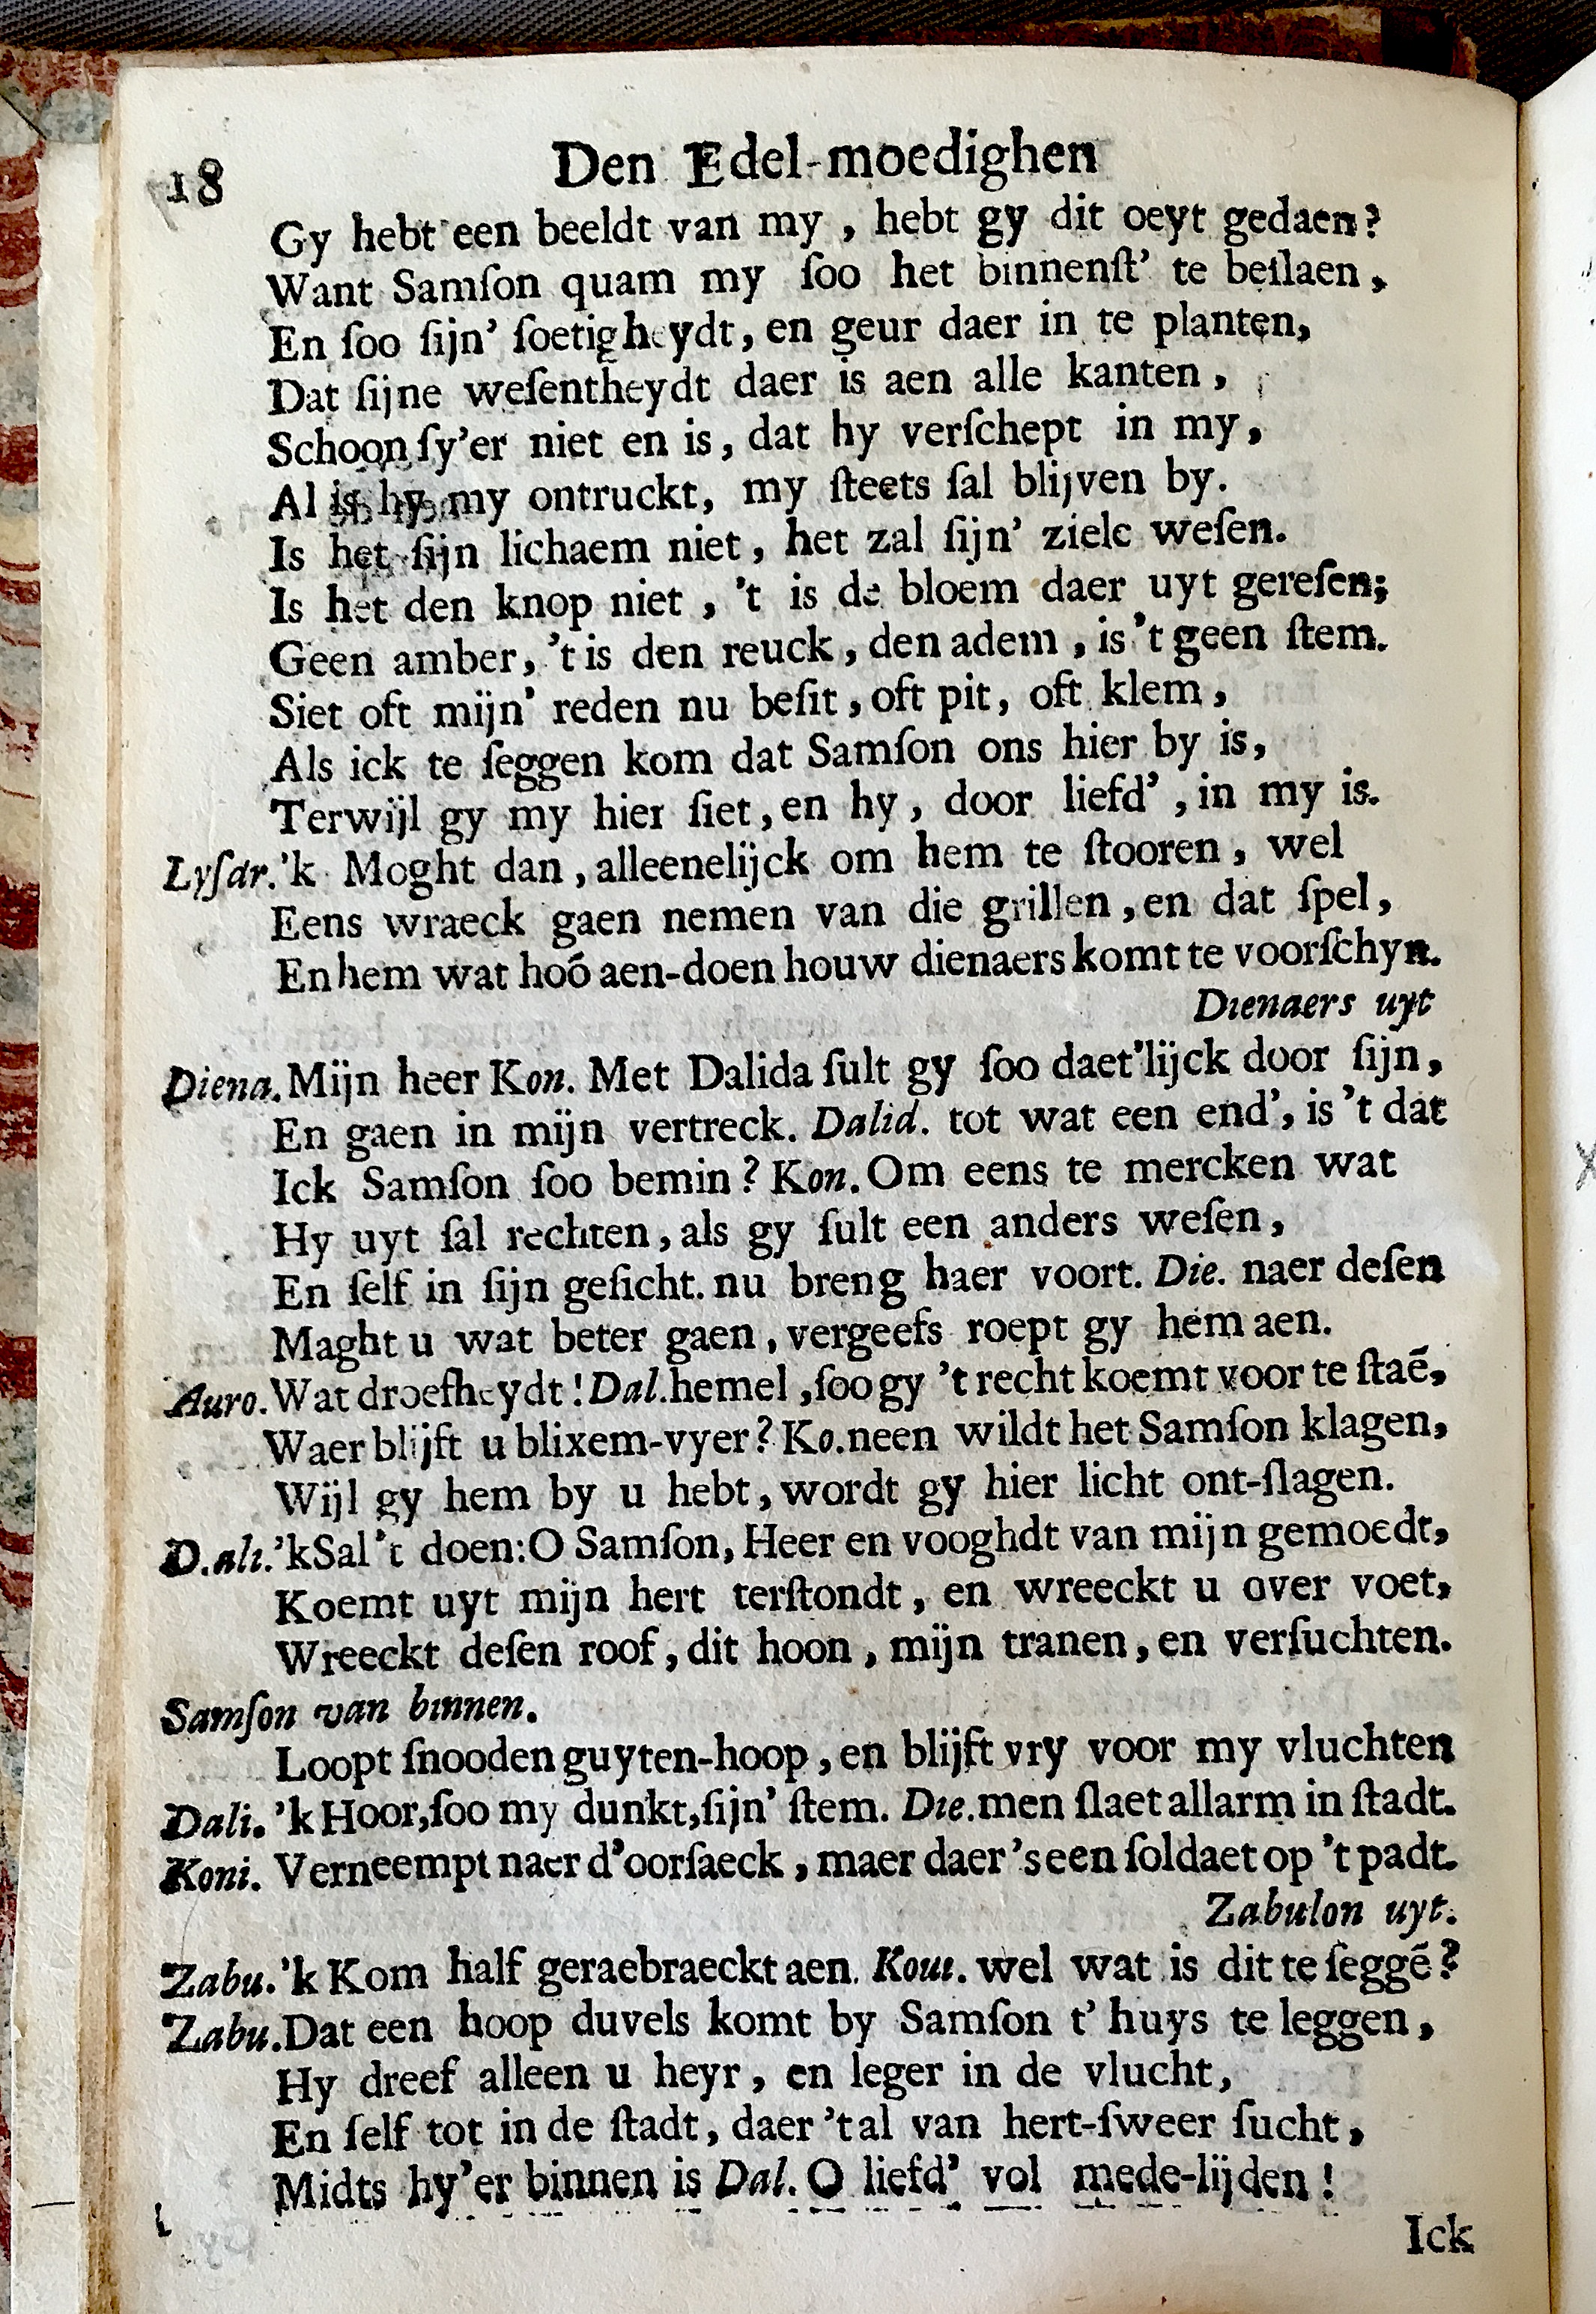 18 Den Edel-moedighen
Gy hebt een beeldt van my , hebt gy dit oeyt gedaen?
Want Samſon quam my ſoo het binnenſt' te beſlaen,
En ſoo ſijn' ſoetigheydt, en geur daer in te planten,
Dat ſijne weſentheydt daer is aen alle kanten ,
Schoon ſy'er niet en is, dat hy verſchept in my,
Al is hy my ontruckt, my ſteets ſal blijven by.
Is het ſijn lichaem niet, het zal ſijn' ziele weſen.
Is het den knop niet , 't is de bloem daer uyt gereſen;
Geen amber, 't is den reuck, den adem , is 't geen ſtem.
Siet oft mijn' reden nu beſit, oft pit, oft klem,
Als ick te ſeggen kom dat Samſon ons hier by is,
Terwijl gy my hier ſiet, en hy, door liefd', in my is.
Lyſar. 'k Moght dan, alleenelijck om hem te ſtooren, wel
Eens wraeck gaen nemen van die grillen, en dat ſpel,
En hem wat hoō aen-doen houw dienaers komt te voorſchyn.
Dienaers uyt
Diena. Mijn heer Kon. Met Dalida ſult gy ſoo daet'lijck door ſijn,
En gaen in mijn vertreck. Dalid. tot wat een end', is 't dat
Ick Samſon ſoo bemin? Kon. Om eens te mercken wat
Hy uyt ſal rechten, als gy ſult een anders weſen,
En ſelf in ſijn geſicht. nu breng haer voort. Die. naer deſen
Maght u wat beter gaen, vergeefs roept gy hem aen.
Auro. Wat droefheydt! Dal. hemel, ſoo gy 't recht koemt voor te ſtaē,
Waer blijft u blixem-vyer? Ko. neen wildt het Samſon klagen,
Wijl gy hem by u hebt, wordt gy hier licht ont-ſlagen.
D.ali. 'kSal 't doen: O Samſon, Heer en vooghdt van mijn gemoedt,
Koemt uyt mijn hert terſtondt, en wreeckt u over voet,
Wreeckt deſen roof, dit hoon, mijn tranen, en verſuchten.
Samſon van binnen.
Loopt ſnooden guyten-hoop, en blijft vry voor my vluchten
Dali. 'k Hoor, ſoo my dunkt, ſijn' ſtem. Die. men ſlaet allarm in ſtadt.
Koni. Verneempt naer d'oorſaeck, maer daer 's een ſoldaet op 't padt.
Zabulon uyt.
Zabu. 'k Kom half geraebraeckt aen. Kom. wel wat is dit te ſeggē?
Zabu. Dat een hoop duvels komt by Samſon t' huys te leggen,
Hy dreef alleen u heyr, en leger in de vlucht,
En ſelf tot in de ſtadt, daer 't al van hert-ſweer ſucht,
Midts hy'er binnen is Dal. O liefd' vol mede-lijden!
Ick